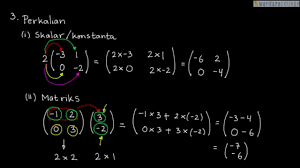 3. Perkalian
(i) Skalar/konstanta
2 (-3 1 = (2×-3 2×1 = (-6 2
0 -2) 2×0 2×-2) 0 -4)
(ii) Matriks
(-1 2 (3 = (-1×3 + 2×(-2) = (-3-4
0 3) -2) 0×3 + 3×(-2)) 0-6)
2×2 2×1 = (-7
-6)